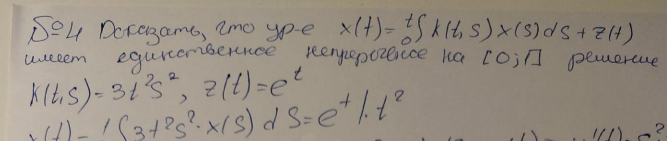 №4 Доказать, что ур-е x(t) = ₀ᵗ∫ K(t,s) x(s) ds + z(t)
имеет единственное непрерывное на [0;1] решение
K(t,s) = 3t²s², z(t) = eᵗ
3t²s² · x(s) ds = eᵗ |· t²